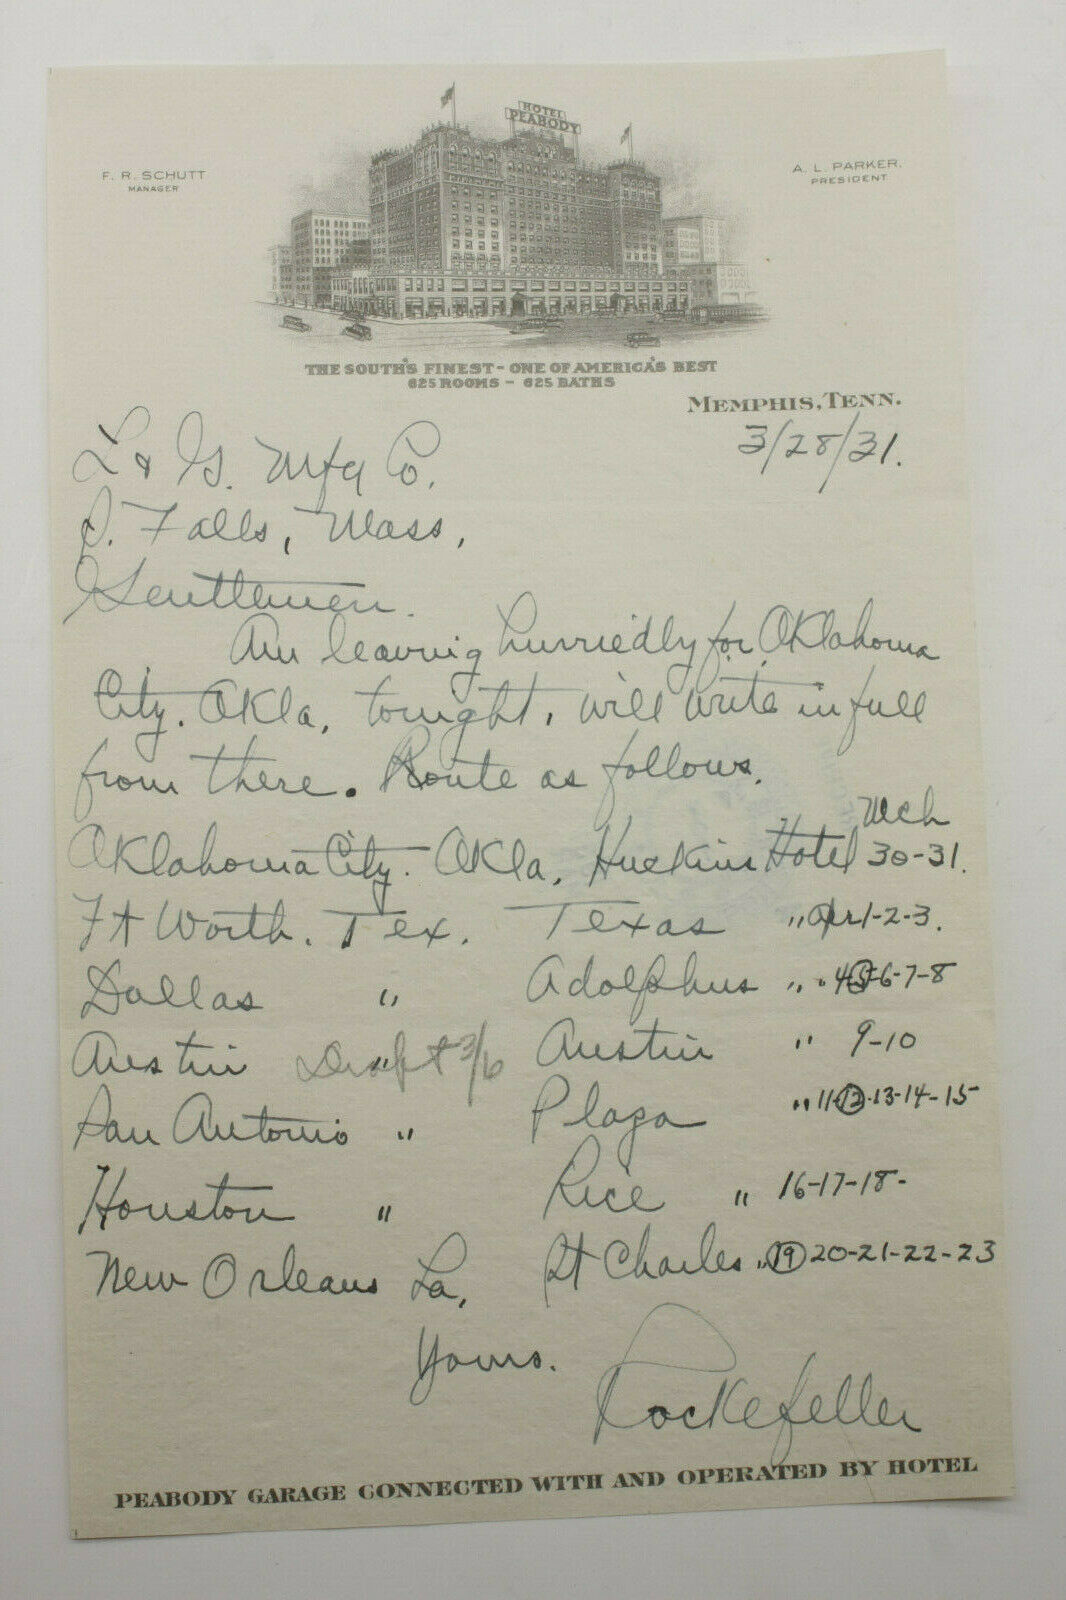 HOTEL
PEABODY
F. R. SCHUTT
MANAGER
A. L. PARKER.
PRESIDENT
THE SOUTH'S FINEST - ONE OF AMERICA'S BEST
625 ROOMS - 625 BATHS
MEMPHIS, TENN.
3/28/31.
L & G. Mfg Co.
S. Falls, Mass,
Gentlemen.
Am leaving hurriedly for Oklahoma
City. Okla, tonight, will write in full
from there. Route as follows.
Oklahoma City. Okla, Huckins Hotel Mch 30-31.
Ft Worth. Tex. Texas " Apr 1-2-3.
Dallas " Adolphus " 4-5-6-7-8
Austin " Draft 3/6 Austin " 9-10
San Antonio " Plaza " 11-12-13-14-15
Houston " Rice " 16-17-18-
New Orleans La, St Charles " 19 20-21-22-23
Yours.
Rockefeller
PEABODY GARAGE CONNECTED WITH AND OPERATED BY HOTEL